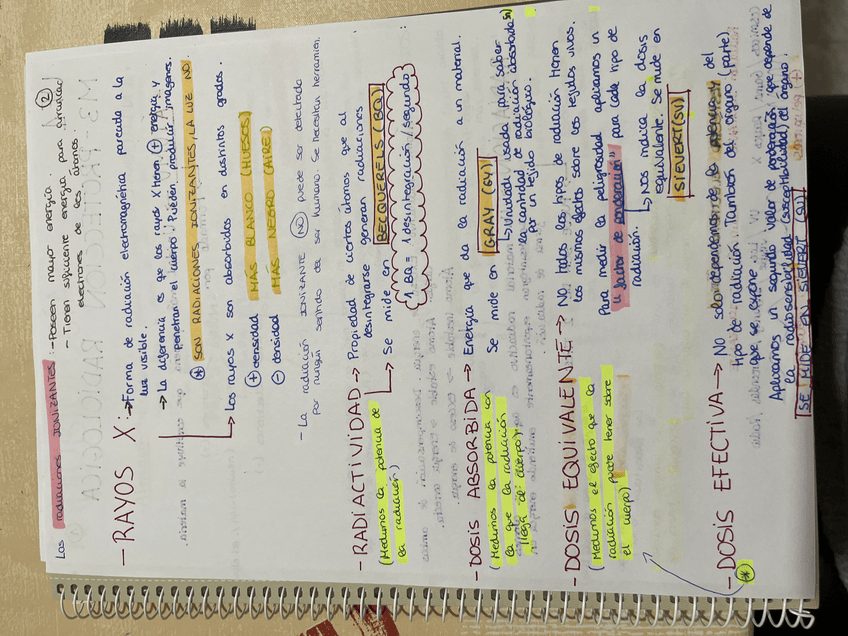 Las radiaciones IONIZANTES: - Poseen mayor energía. ②
- Tienen suficiente energía para arrancar
electrones de los átomos.
- RAYOS X: → Forma de radiación electromagnética parecida a la
luz visible.
→ La diferencia es que los rayos X tienen ⊕ energía y
penetrar el cuerpo. Pueden producir imágenes.
⊛ SON RADIACIONES IONIZANTES, LA LUZ NO.
→ Los rayos x son absorbidos en distintos grados.
⊕ densidad MÁS BLANCO (HUESOS)
⊖ densidad MÁS NEGRO (AIRE)
- La radiación IONIZANTE NO puede ser detectada
por ningún sentido del ser humano. Se necesitan herramien.
- RADIACTIVIDAD → Propiedad de ciertos átomos que al
desintegrarse generan radiaciones
(Medimos la potencia de
la radiación)
→ Se mide en BECQUERELS (BQ)
1 BQ = 1 desintegración/segundo
- DOSIS ABSORBIDA → Energía que da la radiación a un material.
(Medimos la potencia con
la que la radiación
llega al cuerpo)
Se mide en GRAY (GY)
→ Unidad usada para saber
la cantidad de radiación absorbida
por un tejido biológico.
- DOSIS EQUIVALENTE → No todos los tipos de radiación tienen
los mismos efectos sobre los tejidos vivos.
(Medimos el efecto que la
radiación puede tener sobre
el cuerpo)
Para medir la peligrosidad aplicamos un
"factor de ponderación" para cada tipo de
radiación.
→ Nos indica la dosis
equivalente. Se mide en
SIEVERT (SV)
- DOSIS EFECTIVA → No solo dependemos de la potencia y del
tipo de radiación. También del órgano (parte)
que se expone.
Aplicamos un segundo valor de ponderación que depende de
la radiosensibilidad (susceptibilidad) del órgano.
SE MIDE EN SIEVERT (SV)